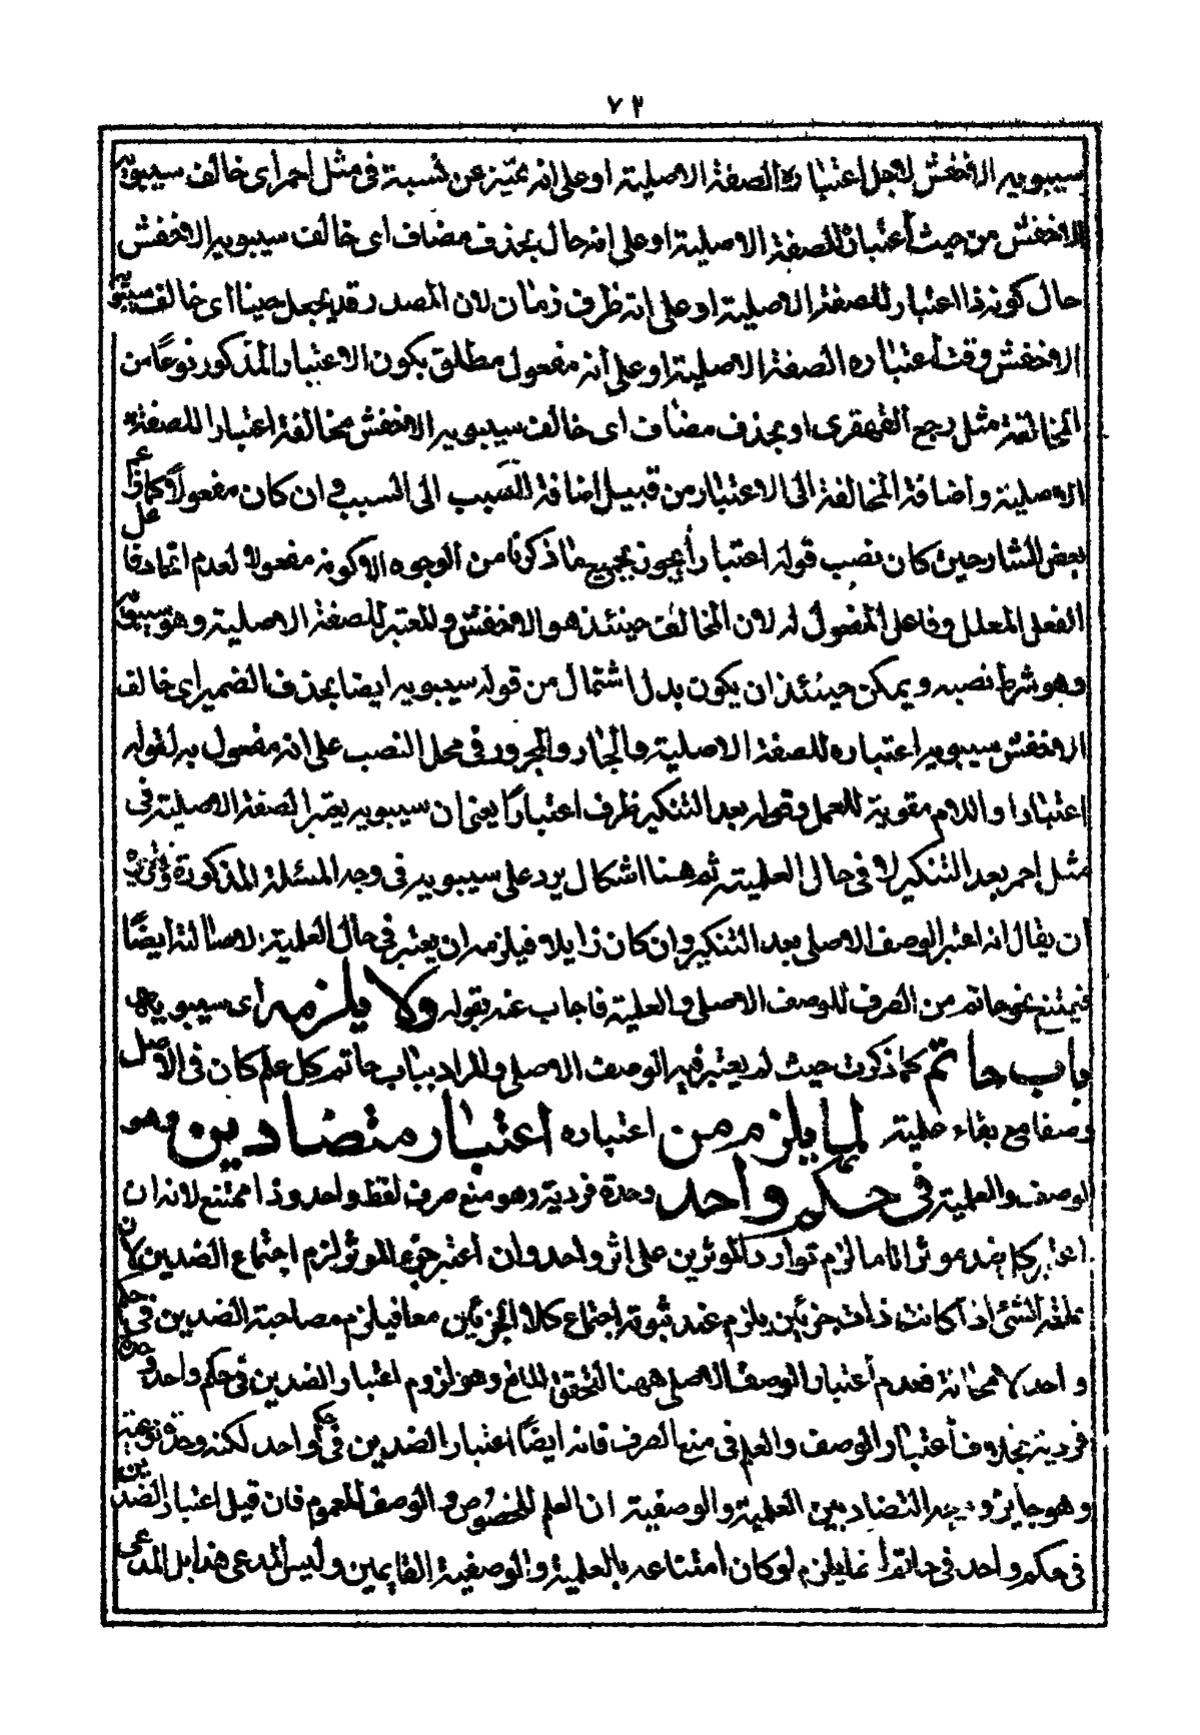 ٧٢
سيبويه الاخفش لاجل اعتباره الصفة الاصلية او على انه تميز عن نسبة فى مثل احمر اى خالف سيبويه
الاخفش من حيث اعتبار الصفة الاصلية او على انه حال بحذف مضاف اى خالف سيبويه الاخفش
حال كونه ذا اعتبار للصفة الاصلية او على انه ظرف زمان لان المصدر قد يجعل حينا اى خالف سيبويه
الاخفش وقت اعتباره الصفة الاصلية او على انه مفعول مطلق بكون الاعتبار المذكور نوعًا من
المخالفة مثل رجع القهقرى او بحذف مضاف اى خالف سيبويه الاخفش مخالفة اعتبارا للصفة
الاصلية واضافة المخالفة الى الاعتبار من قبيل اضافة السبب الى المسبب فان كان مفعولاً كما
بعض الشارحين كان نصب قوله اعتبارا يجوز بجميع ما ذكرنا من الوجوه الا كونه مفعولا لعدم اتحاد فا
الفعل المعلل وفاعل المفعول له لان المخالف حينئذ هو الاخفش والمعتبر للصفة الاصلية وهو سيبويه
وهو شرط نصبه ويمكن حينئذ ان يكون بدل اشتمال من قوله سيبويه ايضا بحذف الضمير اى خالف
الاخفش سيبويه اعتباره للصفة الاصلية والجار والمجرور فى محل النصب على انه مفعول به لقوله
اعتبارا واللام مقوية للعمل وقوله بعد التنكير ظرف اعتبارًا يعنى ان سيبويه يعتبر الصفة الاصلية فى
مثل احمر بعد التنكير لا فى حال العلمية ثم هنا اشكال يرد على سيبويه فى وجه المسئلة المذكورة
ان يقال انه اعتبر الوصف الاصلى بعد التنكير وان كان زايلا فيلزمه ان يعتبر فى حال العلمية الاصالته ايضًا
فيمتنع نحو حاتم من الصرف للوصف الاصلى والعلمية فاجاب عنه بقوله ولا يلزمه اى سيبويه
باب حاتم كما ذكرت حيث لم يعتبر فيه الوصف الاصلى والمراد بباب حاتم كل علم كان فى الاصل
وصفا مع بقاء علميته لما يلزم من اعتباره اعتبار متضادين وهو
الوصف والعلمية فى حكم واحد وحدة فردية وهو منع صرف لفظ واحد وذا ممتنع لانه ان
اعتبر كل ضد مؤثرا تاما لزم توارد المؤثرين على اثر واحد وان اعتبر جزء المؤثر لزم اجتماع الضدين لان
علة الشئ اذا كانت ذات جزئين يلزم عند ثبوته اجتماع كلا الجزئين معا فيلزم مصاحبة الضدين فى حكم
واحد لا محالة فعدم اعتبار الوصف الاصلى ههنا لتحقق المانع وهو لزوم اعتبار الضدين فى حكم واحد وحدة
فردية بخلاف اعتبار الوصف والعلم فى منع الصرف فانه ايضًا اعتبار الضدين فى حكم واحد لكنه وحدة نوعية
وهو جايز ووجه التضاد بين العلمية والوصفية ان العلم للخصوص والوصف للعموم فان قيل اعتبار الضدين
فى حكم واحد فى حاتم انما يلزم لو كان امتناعه بالعلمية والوصفية القايمين وليس المدعى هذا بل المدعى